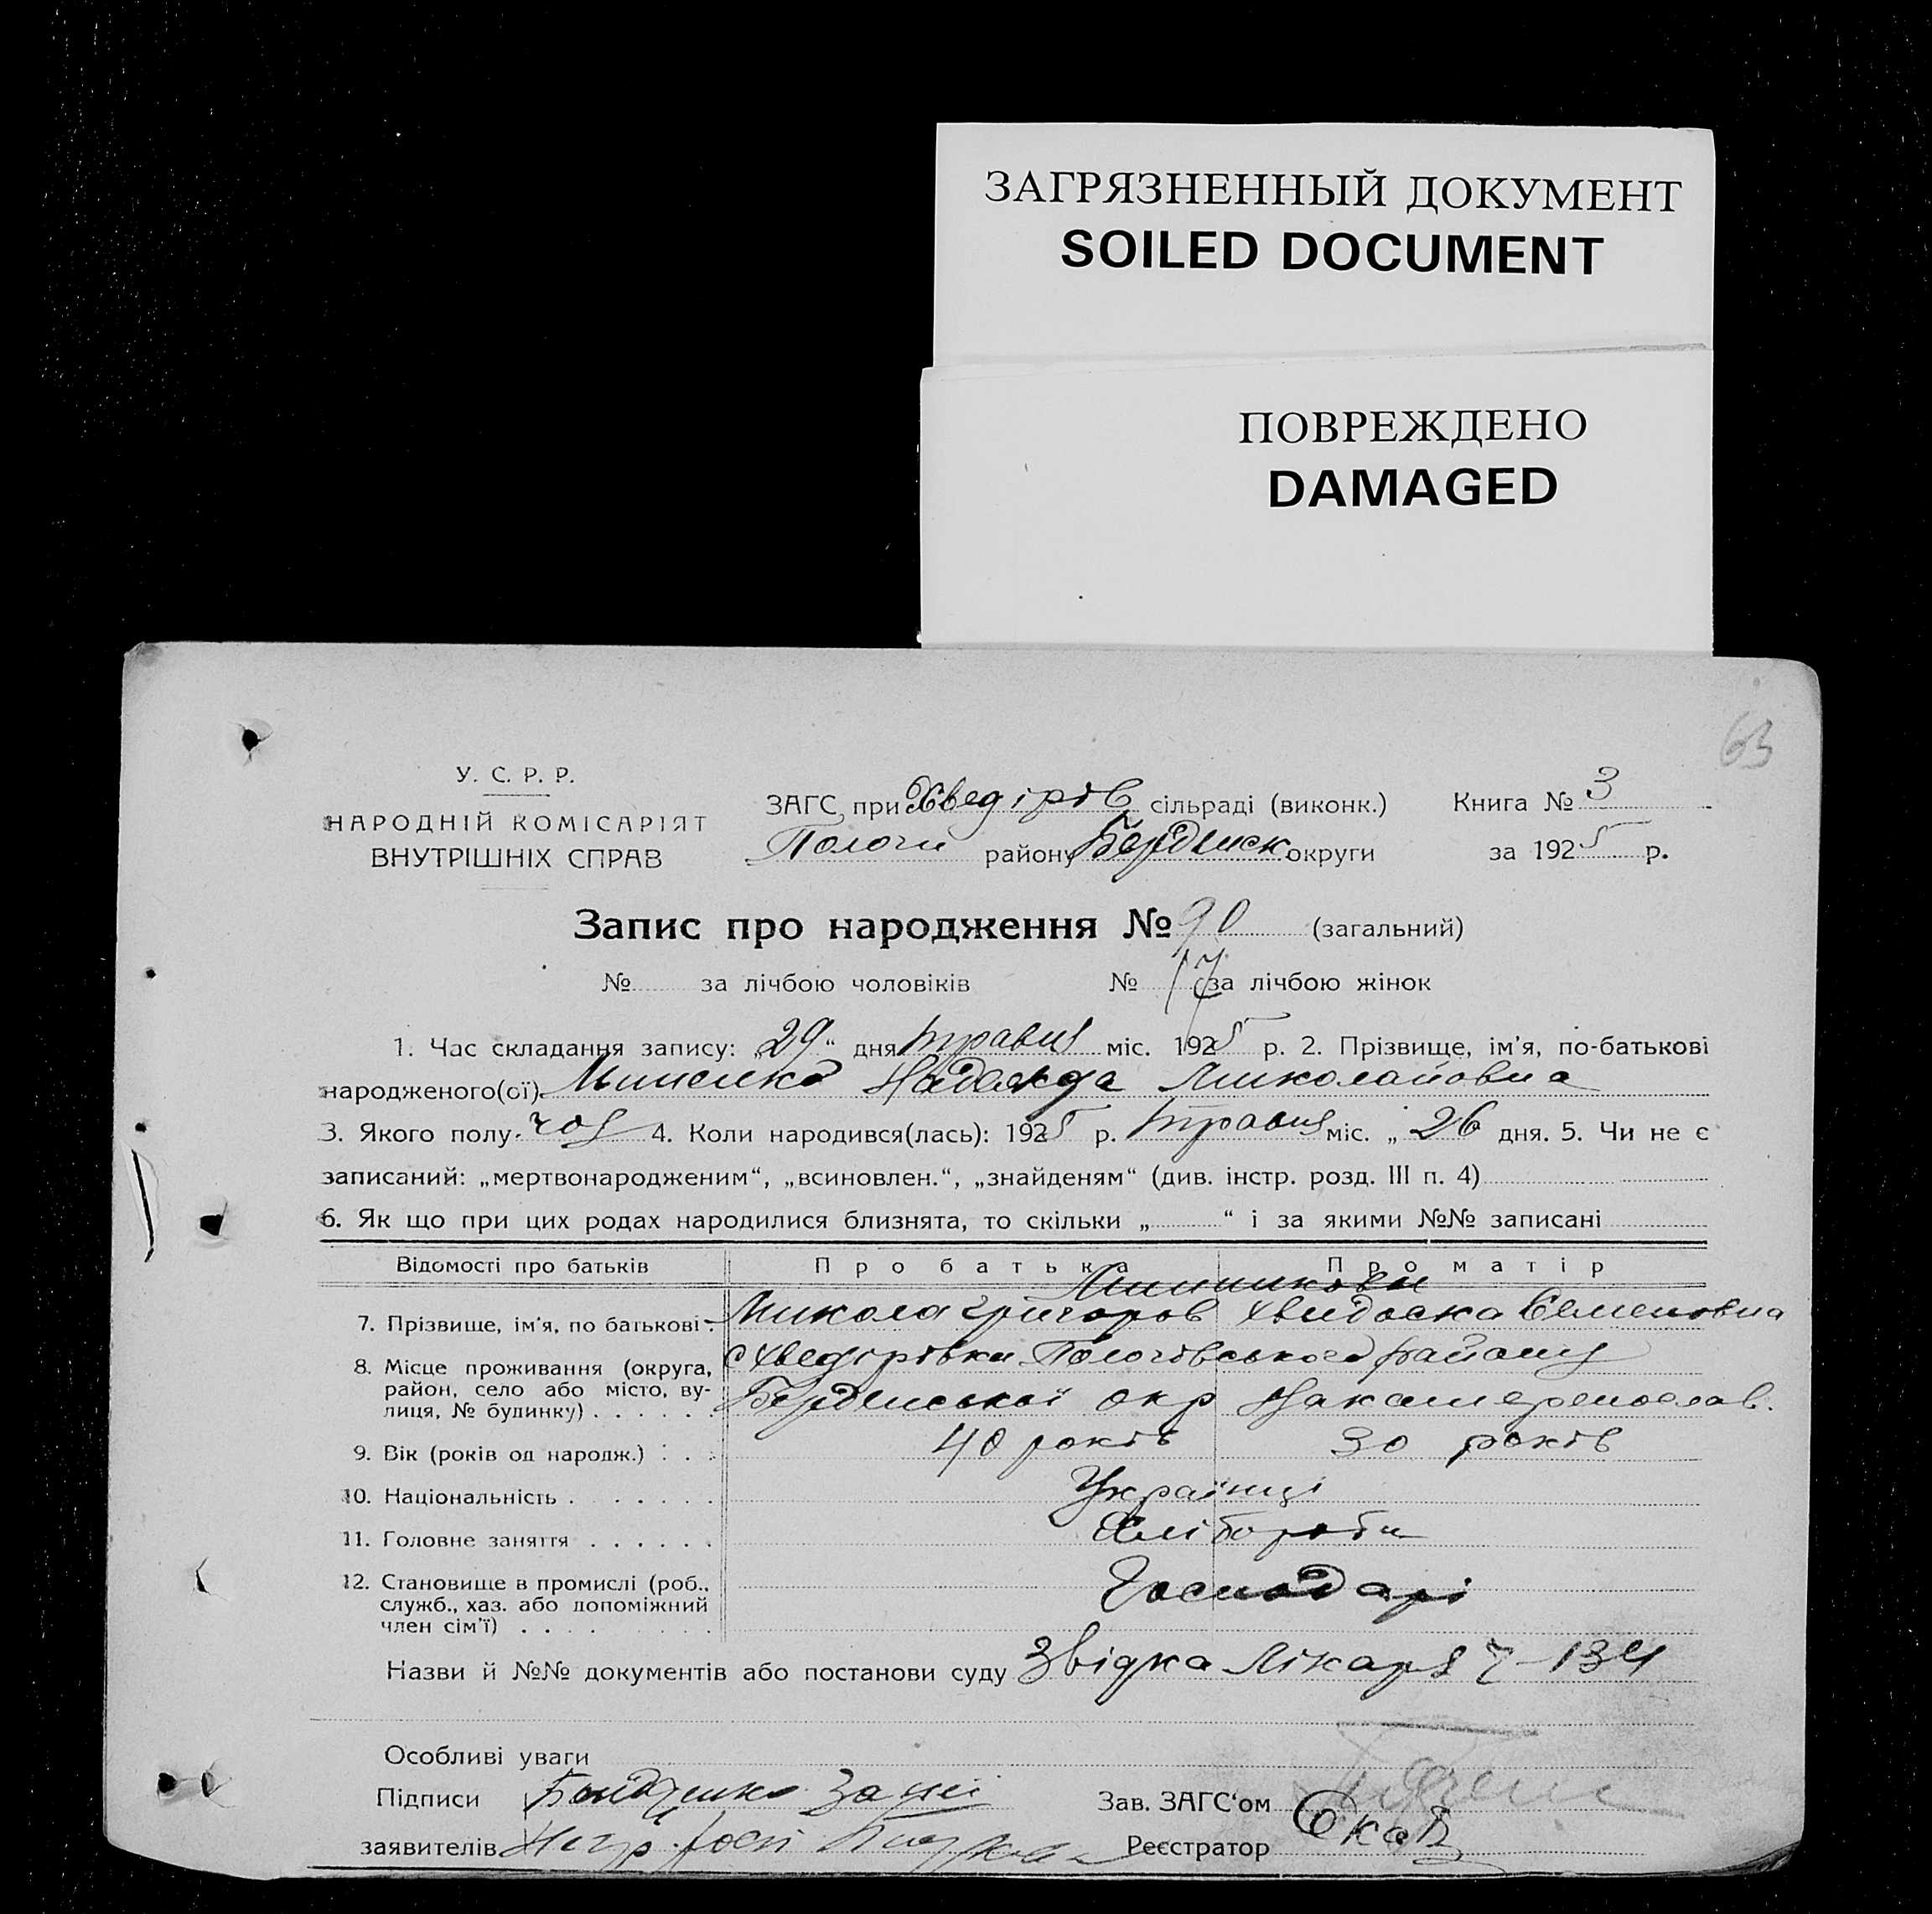 ЗАГРЯЗНЕННЫЙ ДОКУМЕНТ
SOILED DOCUMENT
ПОВРЕЖДЕНО
DAMAGED
63
У. С. Р. Р.
НАРОДНІЙ КОМІСАРІЯТ
ВНУТРІШНІХ СПРАВ
ЗАГС при Хведірів сільраді (виконк.) Книга № 3
Пологи району Бердянск округи за 1925 р.
Запис про народження № 90 (загальний)
№ за лічбою чоловіків № 17 за лічбою жінок
1. Час складання запису: „29“ дня травня міс. 1925 р. 2. Прізвище, ім'я, по-батькові
народженого(ої). Надежда Миколайовна
3. Якого полу. 4. Коли народився(лась): 1925 р. травня міс. „26 дня. 5. Чи не є
записаний: „мертвонародженим“, „всиновлен.“, „знайденям“ (див. інстр. розд. III п. 4)
6. Як що при цих родах народилися близнята, то скільки „ “ і за якими №№ записані
Відомості про батьків Про батька Про матір
7. Прізвище, ім'я, по батькові. Микола Григоров Хвидоска Семеновна
8. Місце проживання (округа, район, село або місто, вулиця, № будинку) с Хведірівки Пологівського району
Бердянської окр
9. Вік (років од народж.) 40 років 30 років
10. Національність Українці
11. Головне заняття Хлібороби
12. Становище в промислі (роб., служб., хаз. або допоміжний член сім'ї) Господарі
Назви й №№ документів або постанови суду Звідка Лікаря 134
Особливі уваги
Підписи Зав. ЗАГС'ом
заявителів Реєстратор